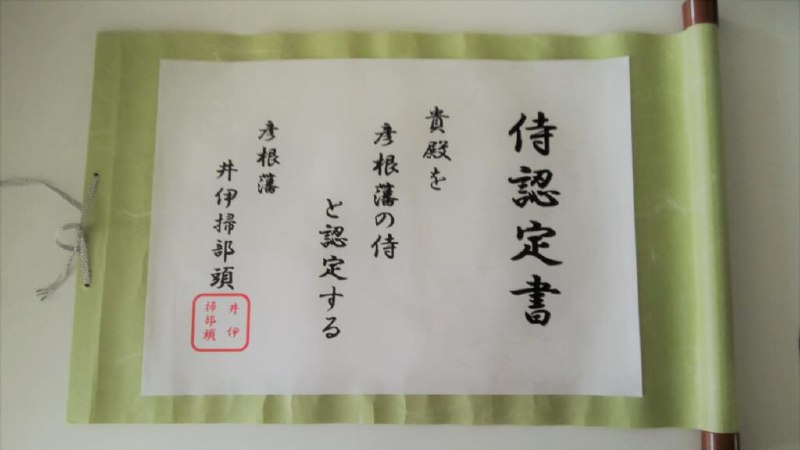 侍認定書
貴殿を
彦根藩の侍
と認定する
彦根藩
井伊掃部頭
井伊
掃部頭